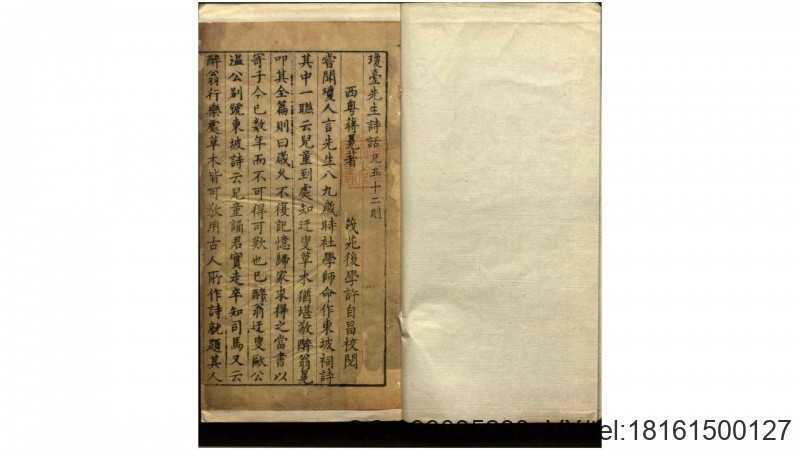 瓊臺先生詩話 凡五十二則
西粵蔣冕著 茂苑後學許自昌校閱
嘗聞瓊人言先生八九歲時社學師命作東坡祠詩
其中一聯云兒童到處知迂叟草木猶堪敬醉翁冕
叩其全篇則曰歲久不復記憶歸家求得之當書以
寄子今已數年而不可得可歎也已醉翁迂叟歐公
溫公別號東坡詩云兒童誦君實走卒知司馬又云
醉翁行樂處草木皆可敬用古人所作詩就題其人
tel:18161500127